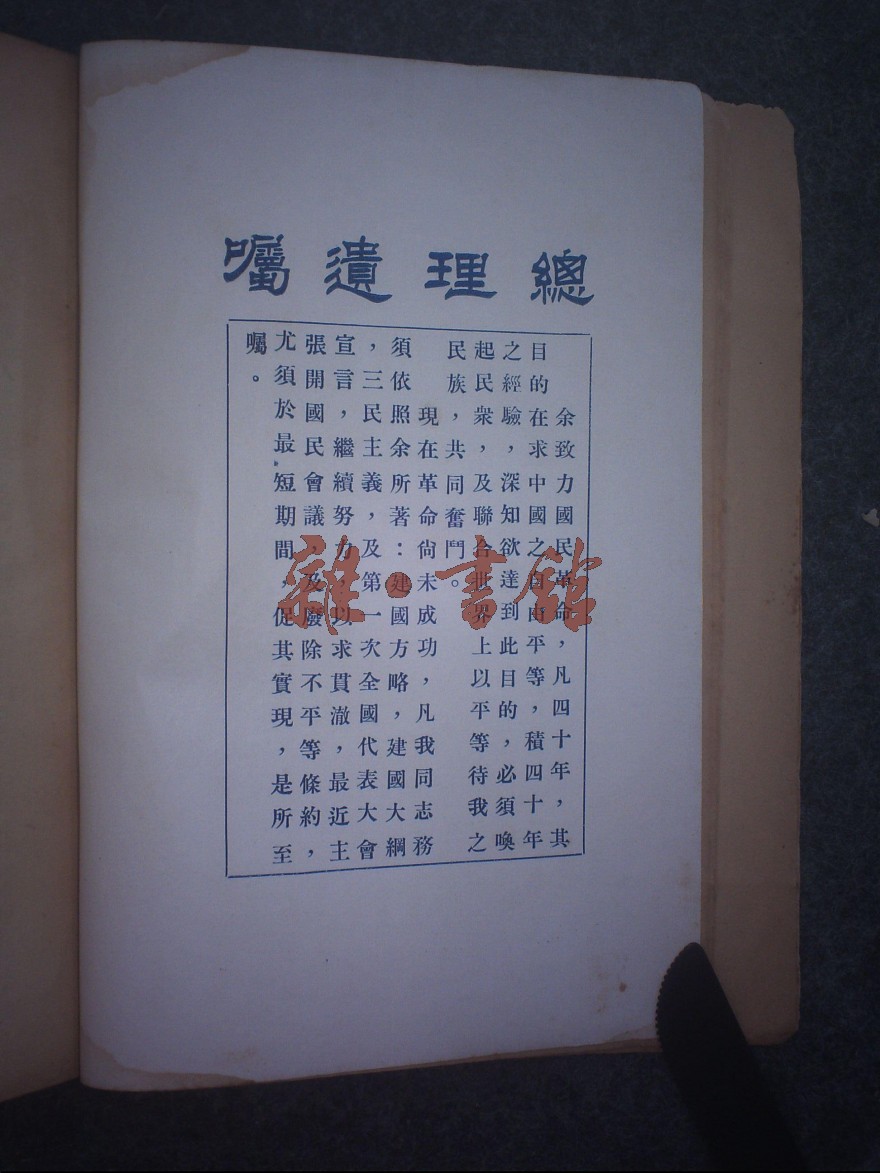 總理遺囑
余致力國民革命，凡四十年，其
目的在求中國之自由平等，積四十年
之經驗，深知欲達到此目的，必須喚
起民衆，及聯合世界上以平等待我之
民族，共同奮鬥。
現在革命尙未成功，凡我同志務
須依照余所著：建國方略，建國大綱
，三民主義，及第一次全國代表大會
宣言，繼續努力，以求貫澈，最近主
張開國民會議，及廢除不平等條約，
尤須於最短期間，促其實現，是所至
囑。
雜·書館